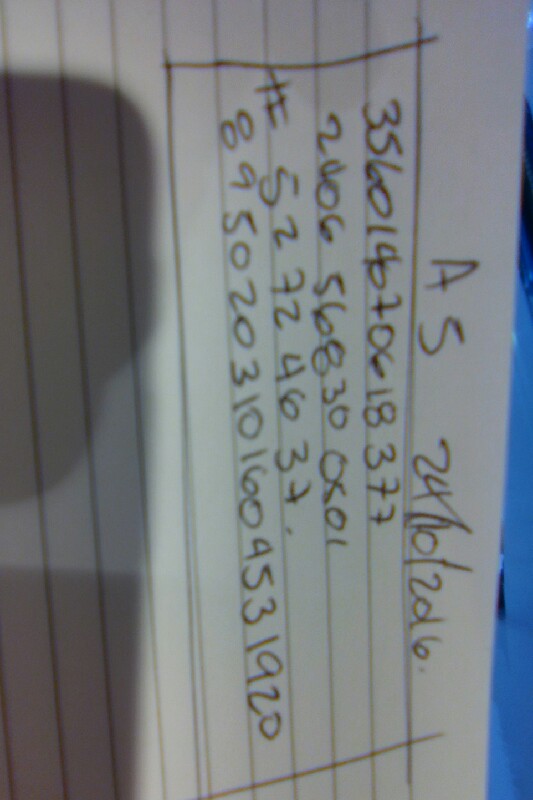 A S 24/10/2016.
356014670618377
2406 56830 0501
# 52 72 46 37.
8950203101604531920